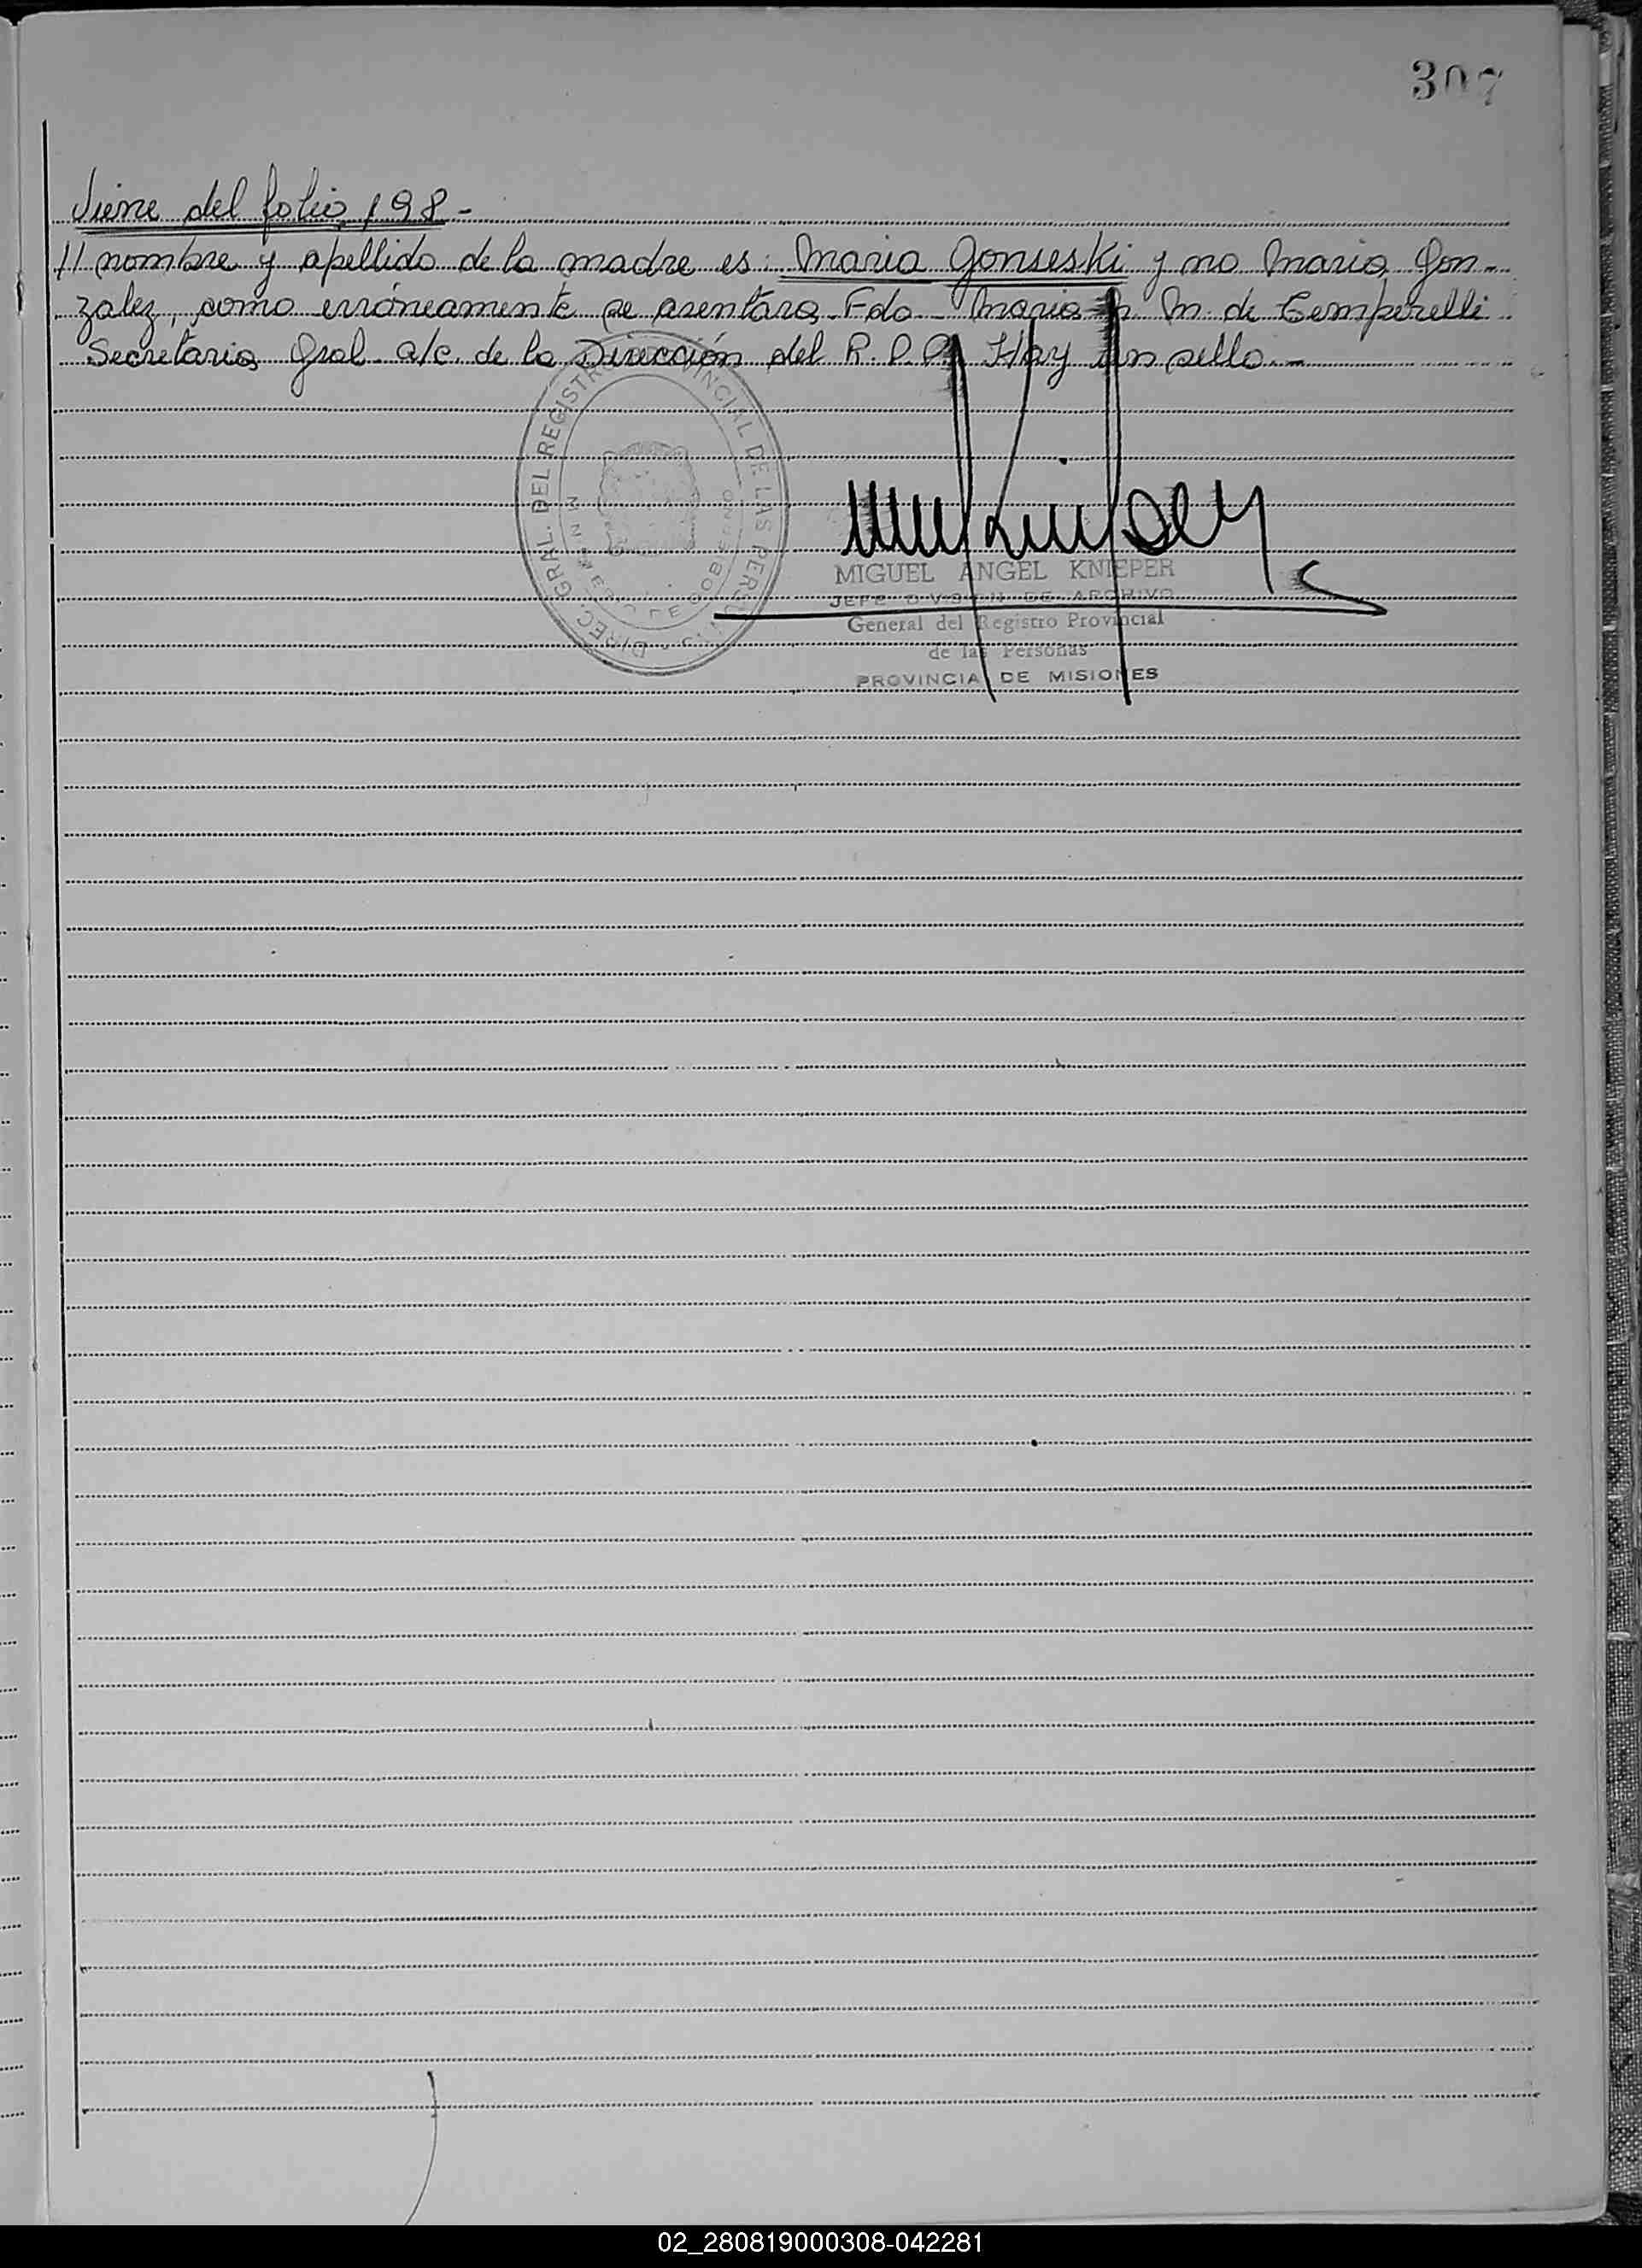 307
Viene del folio 198-
// nombre y apellido de la madre es: Maria Gonseski y no Maria Gon-
zalez, como erróneamente se asentára. Fdo. Maria M. de Cemperelli
Secretaria Gral. a/c. de la Dirección del R.P.P. Hay un sello.-
DIREC. GRAL. DEL REGISTRO PROVINCIAL DE LAS PERSONAS
DE GOBIERNO
MIGUEL ANGEL KNIEPER
JEFE DIVISION DE ARCHIVO
General del Registro Provincial
de las Personas
PROVINCIA DE MISIONES
02_280819000308-042281